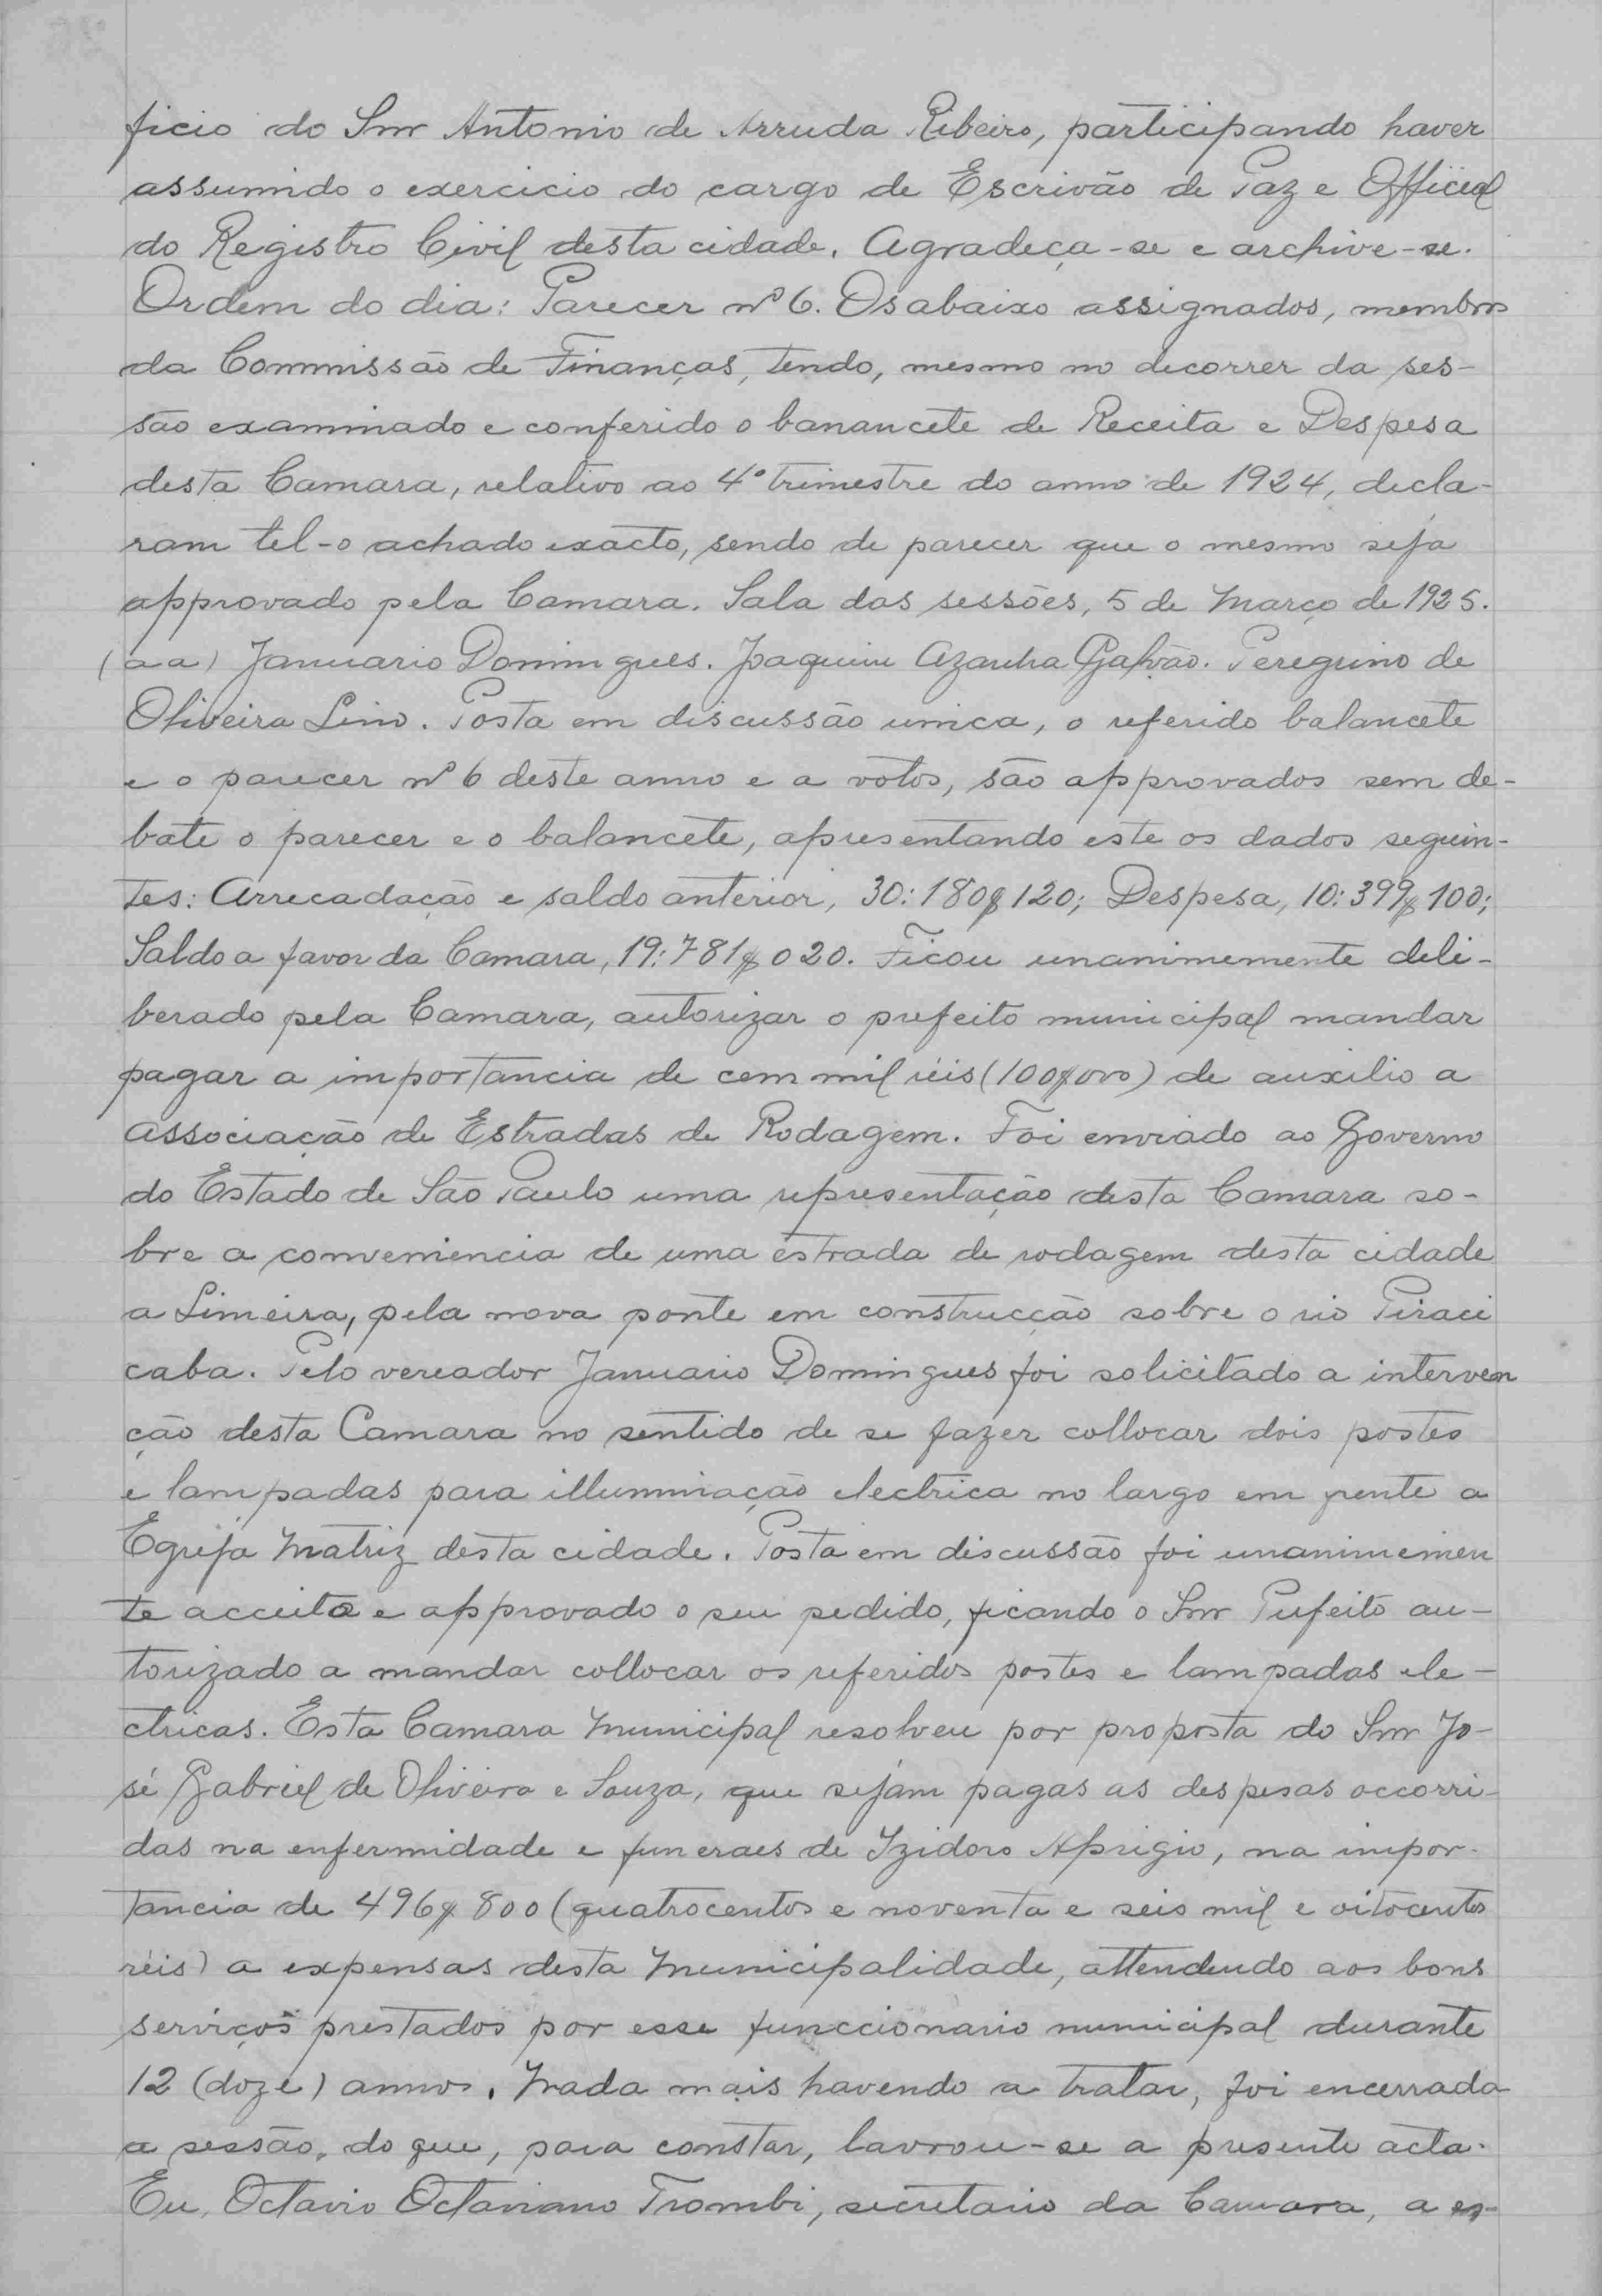 ficio do Snr Antonio de Arruda Ribeiro, participando haver
assumido o exercicio do cargo de Escrivão de Paz e Official
do Registro Civil desta cidade. Agradeça-se e archive-se.
Ordem do dia: Parecer nº 6. Os abaixo assignados, membros
da Commissão de Finanças, tendo, mesmo no decorrer da ses-
são examinado e conferido o banancete de Receita e Despesa
desta Camara, relativo ao 4º trimestre do anno de 1924, decla-
ram tel-o achado exacto, sendo de parecer que o mesmo seja
approvado pela Camara. Sala das sessões, 5 de Março de 1925.
(a a) Januario Domingues. Joaquim Azanha Galvão. Peregrino de
Oliveira Lino. Posta em discussão unica, o referido balancete
e o parecer nº 6 deste anno e a votos, são approvados sem de-
bate o parecer e o balancete, apresentando este os dados seguin-
tes: Arrecadação e saldo anterior, 30:180$120; Despesa, 10:399$100;
Saldo a favor da Camara, 19:781$020. Ficou unanimemente deli-
berado pela Camara, autorizar o prefeito municipal mandar
pagar a importancia de cem mil réis (100$000) de auxilio a
Associação de Estradas de Rodagem. Foi enviado ao Governo
do Estado de São Paulo uma representação desta Camara so-
bre a conveniencia de uma estrada de rodagem desta cidade
a Limeira, pela nova ponte em construcção sobre o rio Piraci
caba. Pelo vereador Januario Domingues foi solicitado a interven
ção desta Camara no sentido de se fazer collocar dois postes
e lampadas para illuminação electrica no largo em frente a
Egreja Matriz desta cidade. Posta em discussão foi unanimemen
te acceita e approvado o seu pedido, ficando o Snr Prefeito au-
torizado a mandar collocar os referidos postes e lampadas ele-
ctricas. Esta Camara Municipal resolveu por proposta do Snr Jo-
sé Gabriel de Oliveira e Souza, que sejam pagas as despesas occorri-
das na enfermidade e funeraes de Izidoro Aprigio, na impor-
tancia de 496$800 (quatrocentos e noventa e seis mil e oitocentos
réis) a expensas desta Municipalidade, attendendo aos bons
serviços prestados por esse funccionario municipal durante
12 (doze) annos. Nada mais havendo a tratar, foi encerrada
a sessão, do que, para constar, lavrou-se a presente acta.
Eu, Octavio Octaviano Trombi, secretario da Camara, a es-